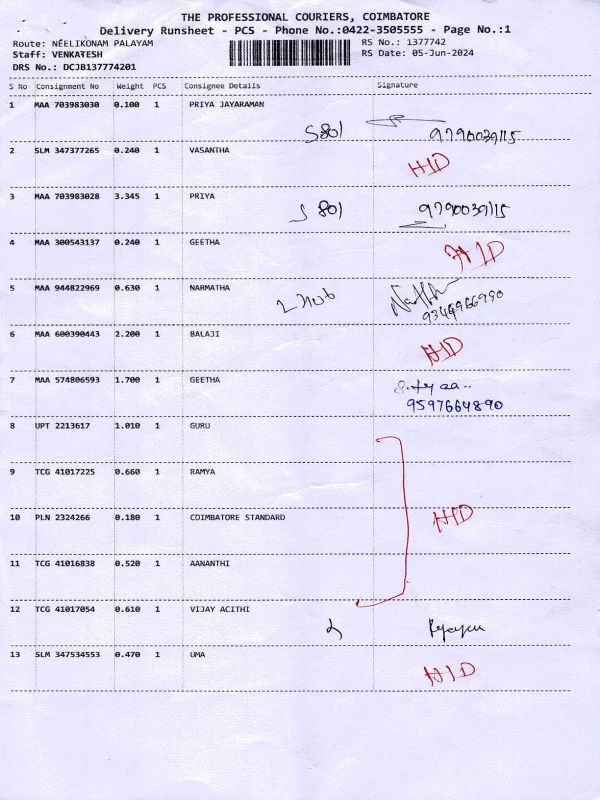 THE PROFESSIONAL COURIERS, COIMBATORE
Delivery Runsheet - PCS - Phone No.:0422-3505555 - Page No.:1
Route: NEELIKONAM PALAYAM RS No.: 1377742
Staff: VENKATESH RS Date: 05-Jun-2024
DRS No.: DCJB137774201
S No Consignment No Weight PCS Consignee Details Signature
1 MAA 703983030 0.100 1 PRIYA JAYARAMAN
S801 9790039115
2 SLM 347377265 0.240 1 VASANTHA
HID
3 MAA 703983028 3.345 1 PRIYA
S 801 9790039115
4 MAA 300543137 0.240 1 GEETHA
HID
5 MAA 944822969 0.630 1 NARMATHA
9344966990
6 MAA 600390443 2.200 1 BALAJI
HID
7 MAA 574806593 1.700 1 GEETHA
9597664890
8 UPT 2213617 1.010 1 GURU
9 TCG 41017225 0.660 1 RAMYA
10 PLN 2324266 0.180 1 COIMBATORE STANDARD
HID
11 TCG 41016838 0.520 1 AANANTHI
12 TCG 41017054 0.610 1 VIJAY ACITHI
13 SLM 347534553 0.470 1 UMA
HID